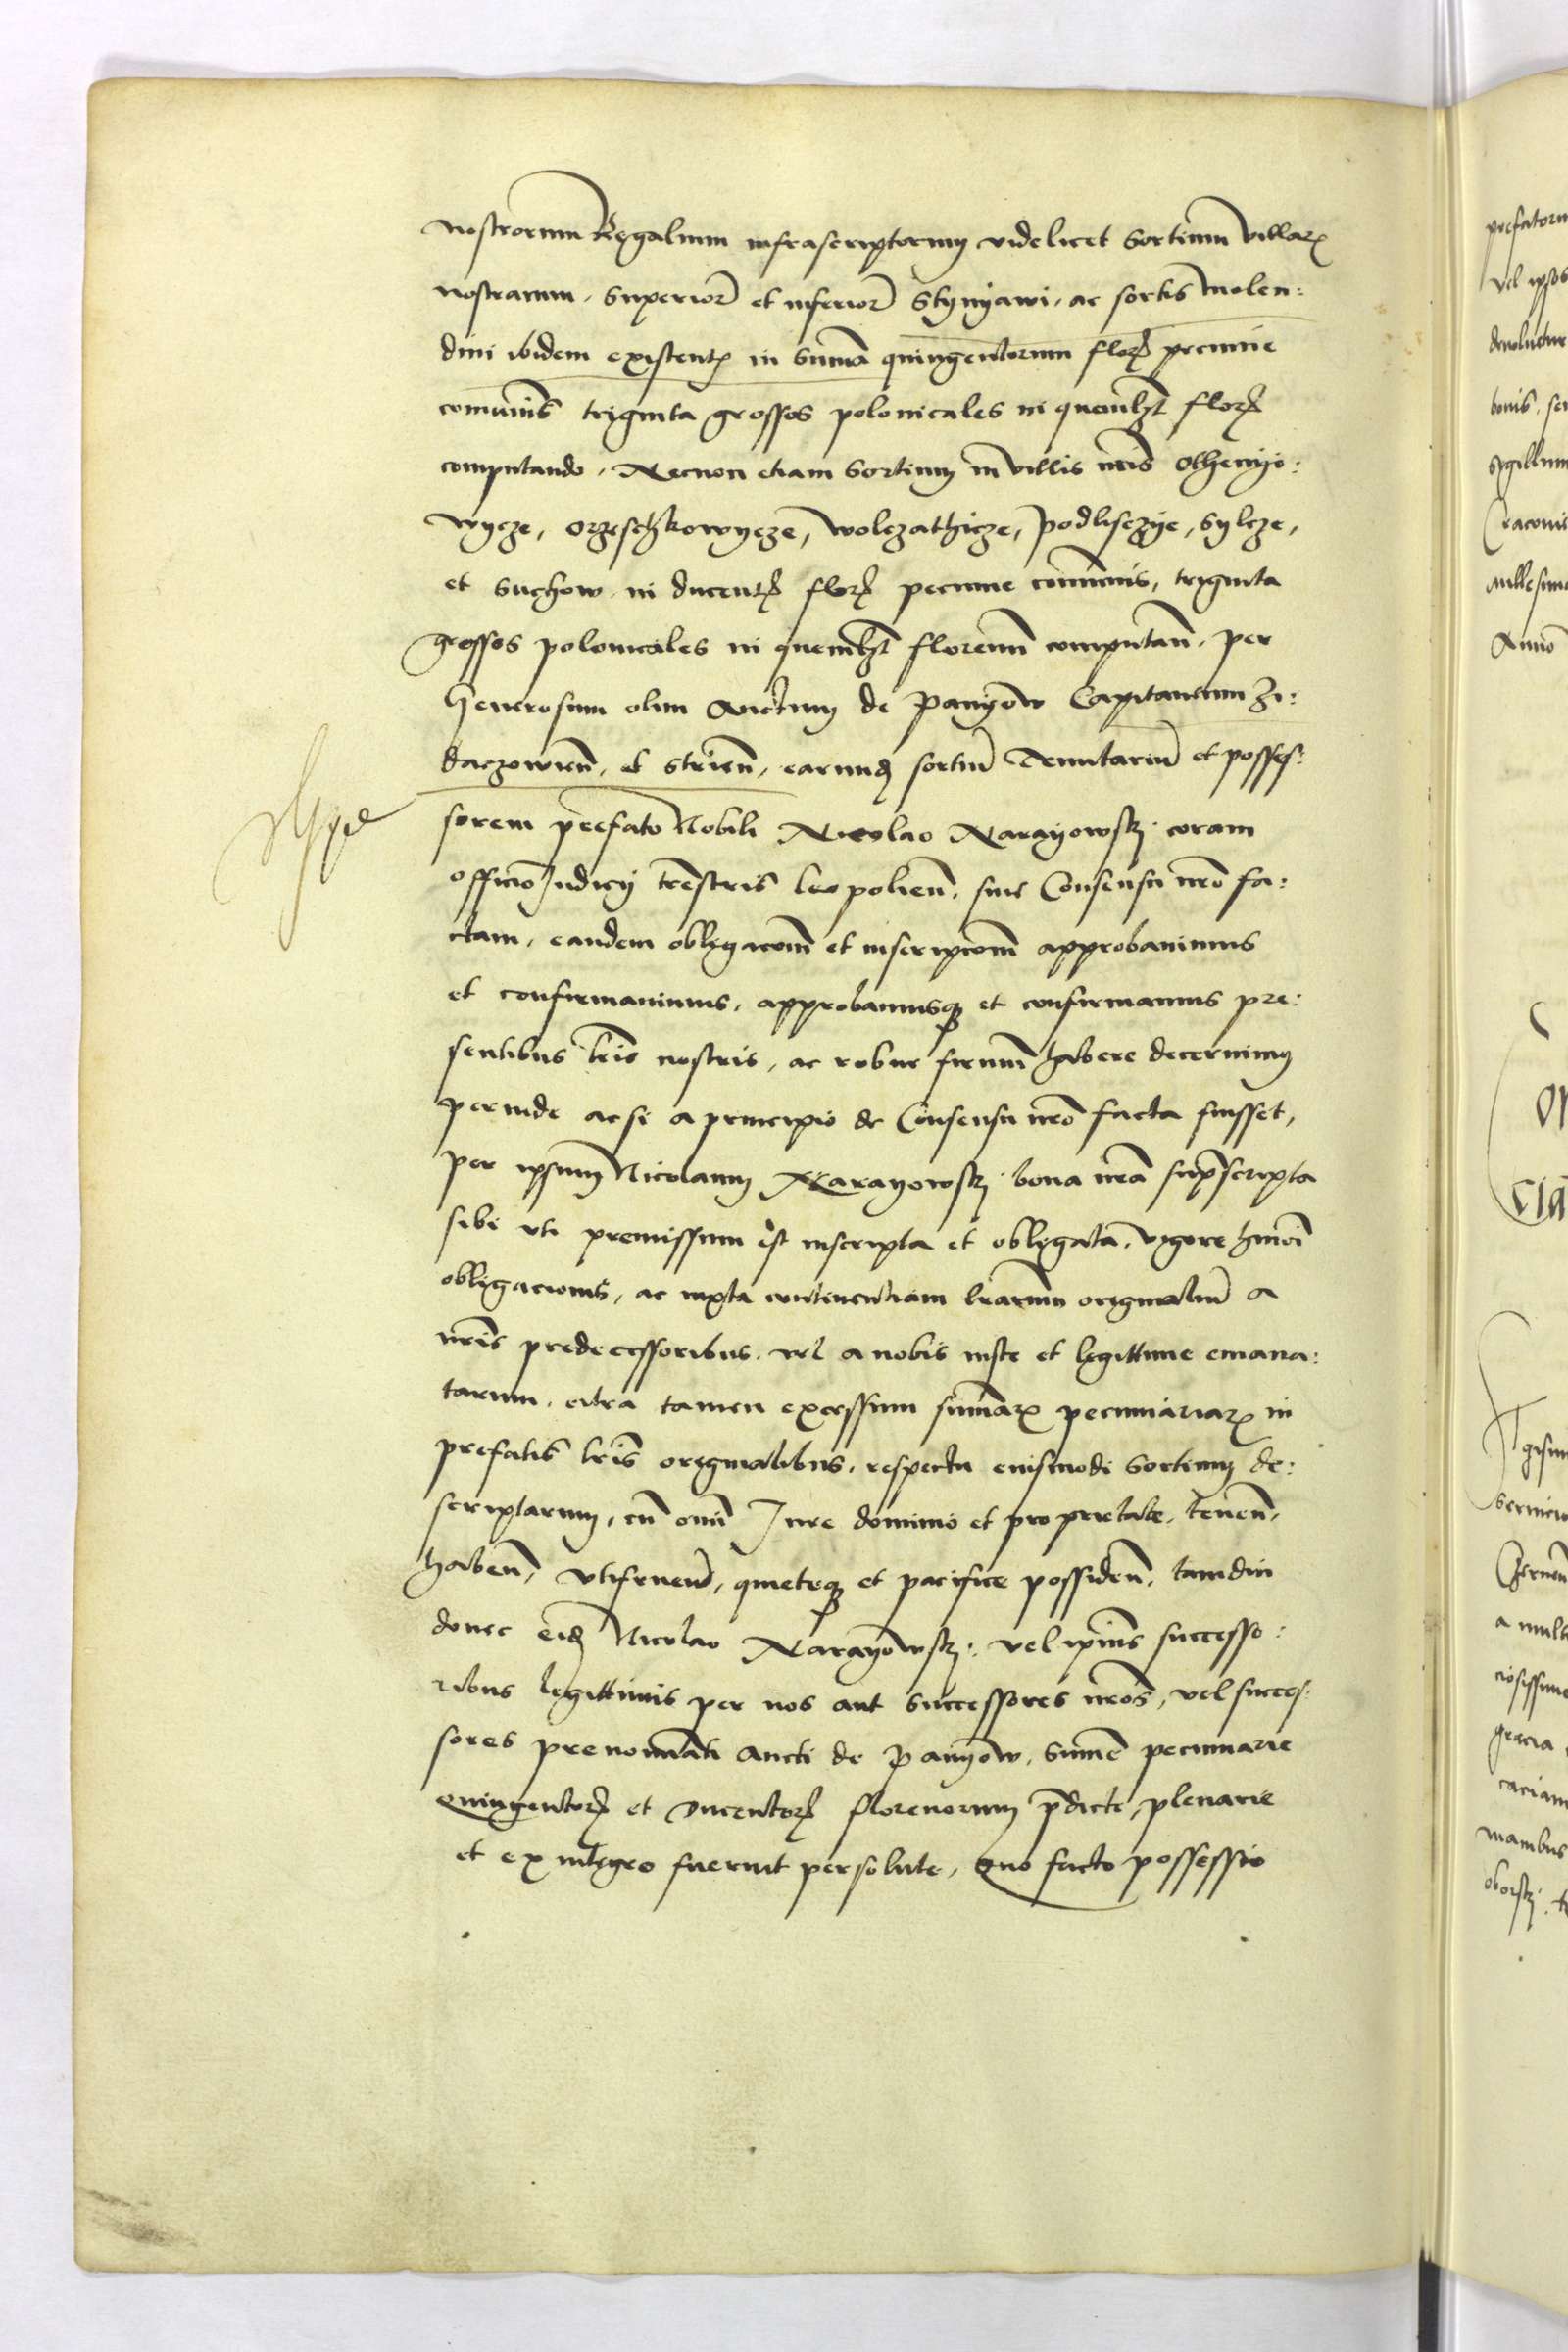 nostrorum Regalium infrascriptorum videlicet Sortium Villarꝝ
nostrarum, Superior̃ et inferior̃ Stynyawi, ac sortis molen:
dini ibidem existentꝭ in sũma quingentorum florꝭ pecunie
comunis triginta grossos polonicales in quemlꝫt florꝭ
computando, Necnon etiam Sortium in villis nr̃is Olhenyo:
wycze, orzeschkowycze, wolczathicze, podliseczye, Sylcze,
et Suchow, in ducentꝭ florꝭ pecunie comunis, triginta
grossos polonicales in quemlꝫt florenum computan̄, per
Generosum olim Auctum de Panyow Capitaneum Zi:
daczowien̄, et Strien̄, earundꝫ sortiũ Tenutariũ et posses:
sorem prefato Nobili Nicolao Narayowskj coram
officio Judicij tr̃estris leopolien̄, sine Consensu nr̃o fa:
ctam, eandem obligacõem et inscripcõem approbavimus
et confirmavimus, approbamusqꝫ et confirmamus pre:
sentibus lr̃is nostris, ac robur firmũ habere decernimus
perinde acsi a principio de Consensu nr̃o facta fuisset,
per ipsum Nicolaum Narayowskj bona nr̃a sup̃scripta
sibi uti premissum est inscripta et obligata, vigore hm̃oi
obligacionis, ac iuxta continentiam lr̃arum originaliũ a
nr̃is predecessoribus vel a nobis iuste et legittime emana:
tarum, citra tamen excessum sum̃arꝝ pecuniariarꝝ in
prefatis lr̃is originalibus, respectu eiusmodi Sortium de:
scriptarum, cũ om̃i Jure dominio et proprietate, tenen̄,
haben̄, utifruen̄, quieteqꝫ et pacifice possiden̄, tamdiu
donec eidꝫ Nicolao Narayowskj: vel ip̃ius successo:
ribus legittimis per nos aut Successores nr̃os, vel succes:
sores prenominati Aucti de Panyow, Sum̃e pecuniarie
quingentorꝭ et Ducentorꝭ florenorum p̃dicte, plenarie
et ex integro fuerint persolute, Quo facto possessio